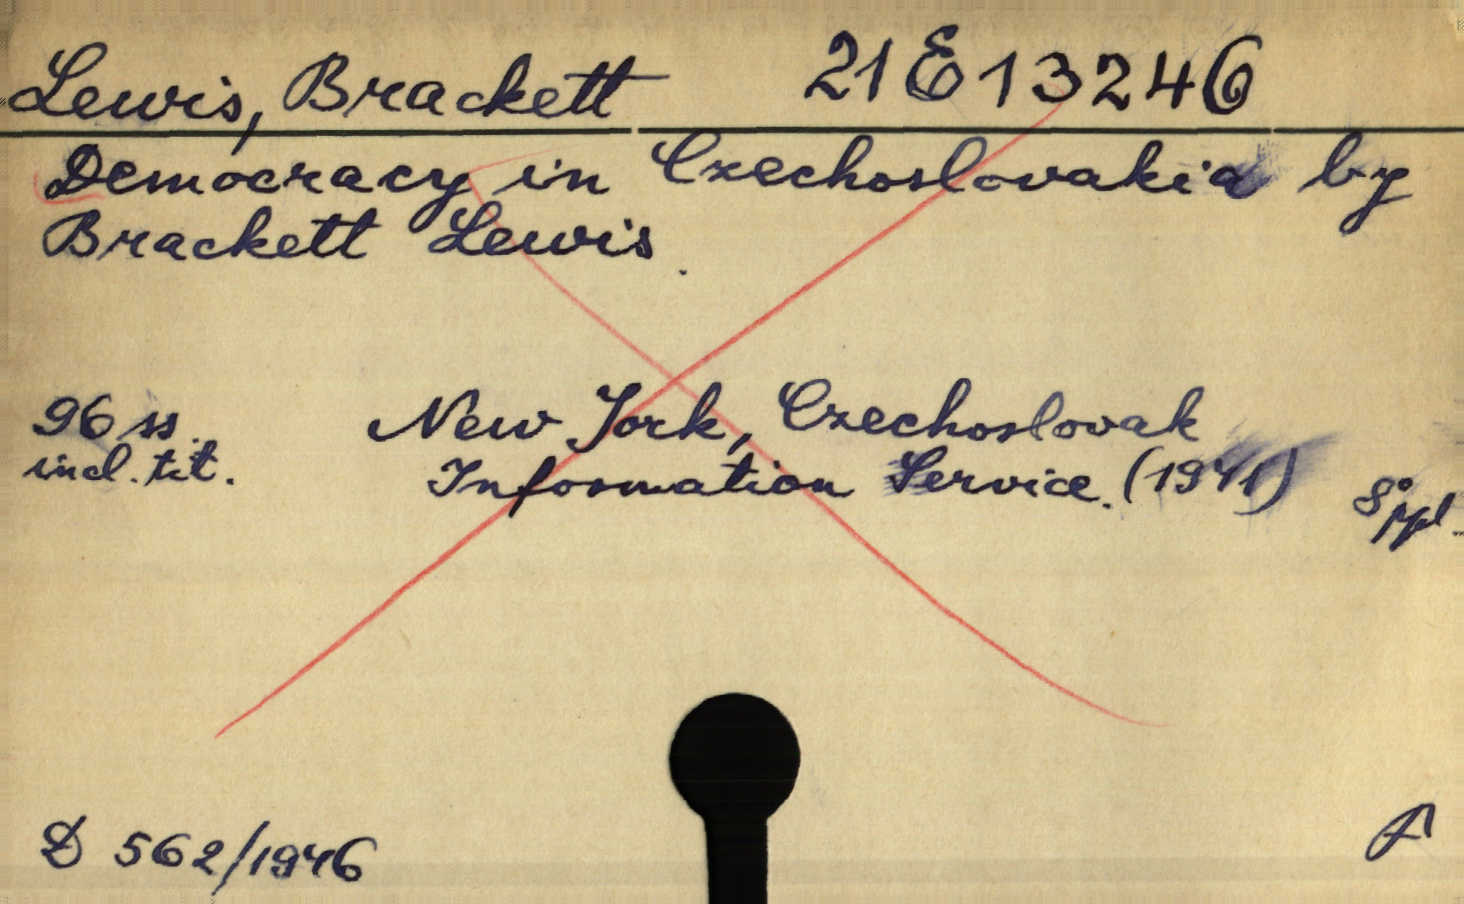 Lewis, Brackett 21 E 13246
Democracy in Czechoslovakia by
Brackett Lewis.
96 ss. New York, Czechoslovak
incl. tit. Information Service. (1941) 8° ppl.
D 562/1946